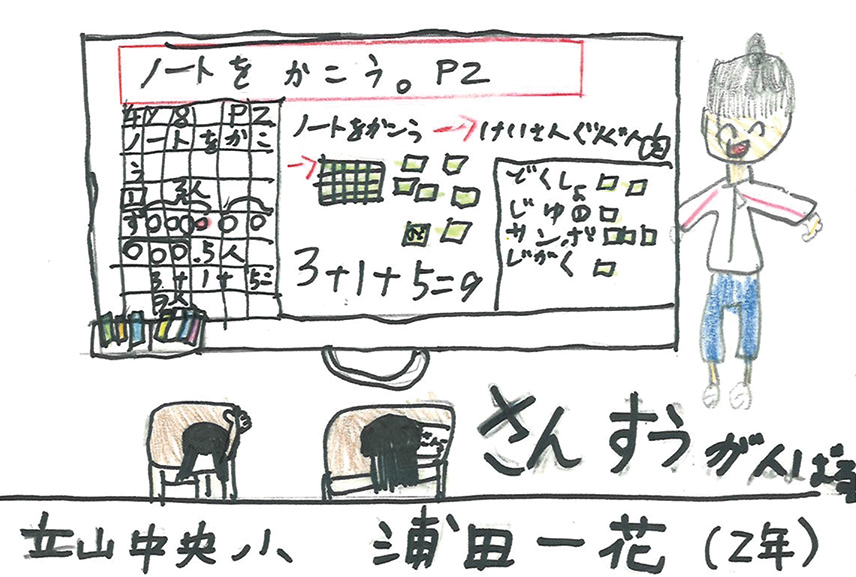 ノートを かこう。P2
P2
ノートをかこ
う
ノートをかこう → けいさんぐんぐん
3人
5人
3+1+5=
9人
3+1+5=9
どくしょ
じゆう
サンポ
じがく
さんすうがんばる
立山中央小 浦田一花(2年)